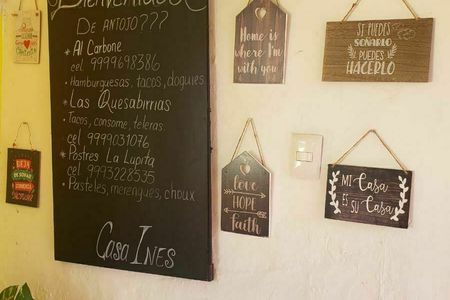 Bienvenidos
DE ANTOJO???
* Al Carbone
cel 9999698386
• Hamburguesas, tacos, dogüies
* Las Quesabirrias
• Tacos, consome, teleras
cel 9999031076
* Postres La Lupita
cel 9993228535
• Pasteles, merengues, choux
Casa INES
Home is
where I'm
with you
SI PUEDES
SOÑARLO
PUEDES
HACERLO
love
HOPE
faith
MI Casa
ES
SU Casa
DEJA
DE SOÑAR